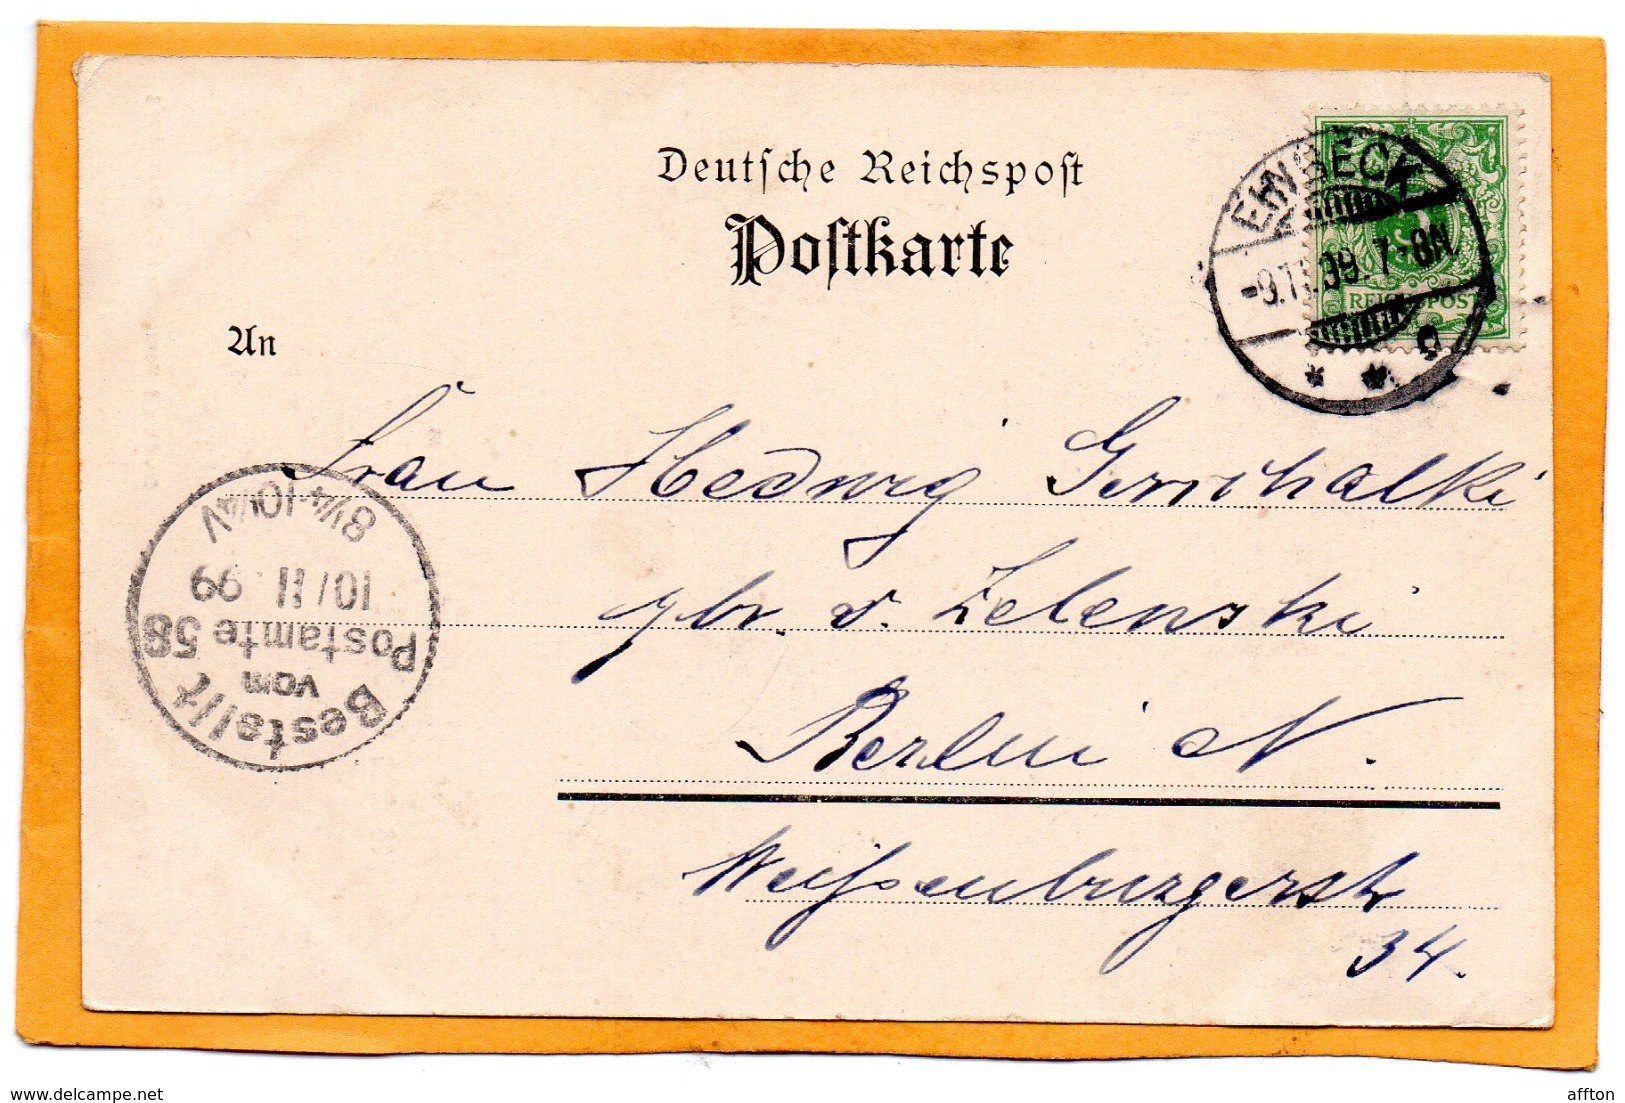 Deutsche Reichspost
Postkarte
An
REICHSPOST
-9.11.99.7-8N.
Frau Hedwig
gbr. v. Zelenski
Berlin N.
Weißenburgerstr
34.
Bestellt
vom
Postamte 58
10/11 99
8¼-10¼V
delcampe.net
affton